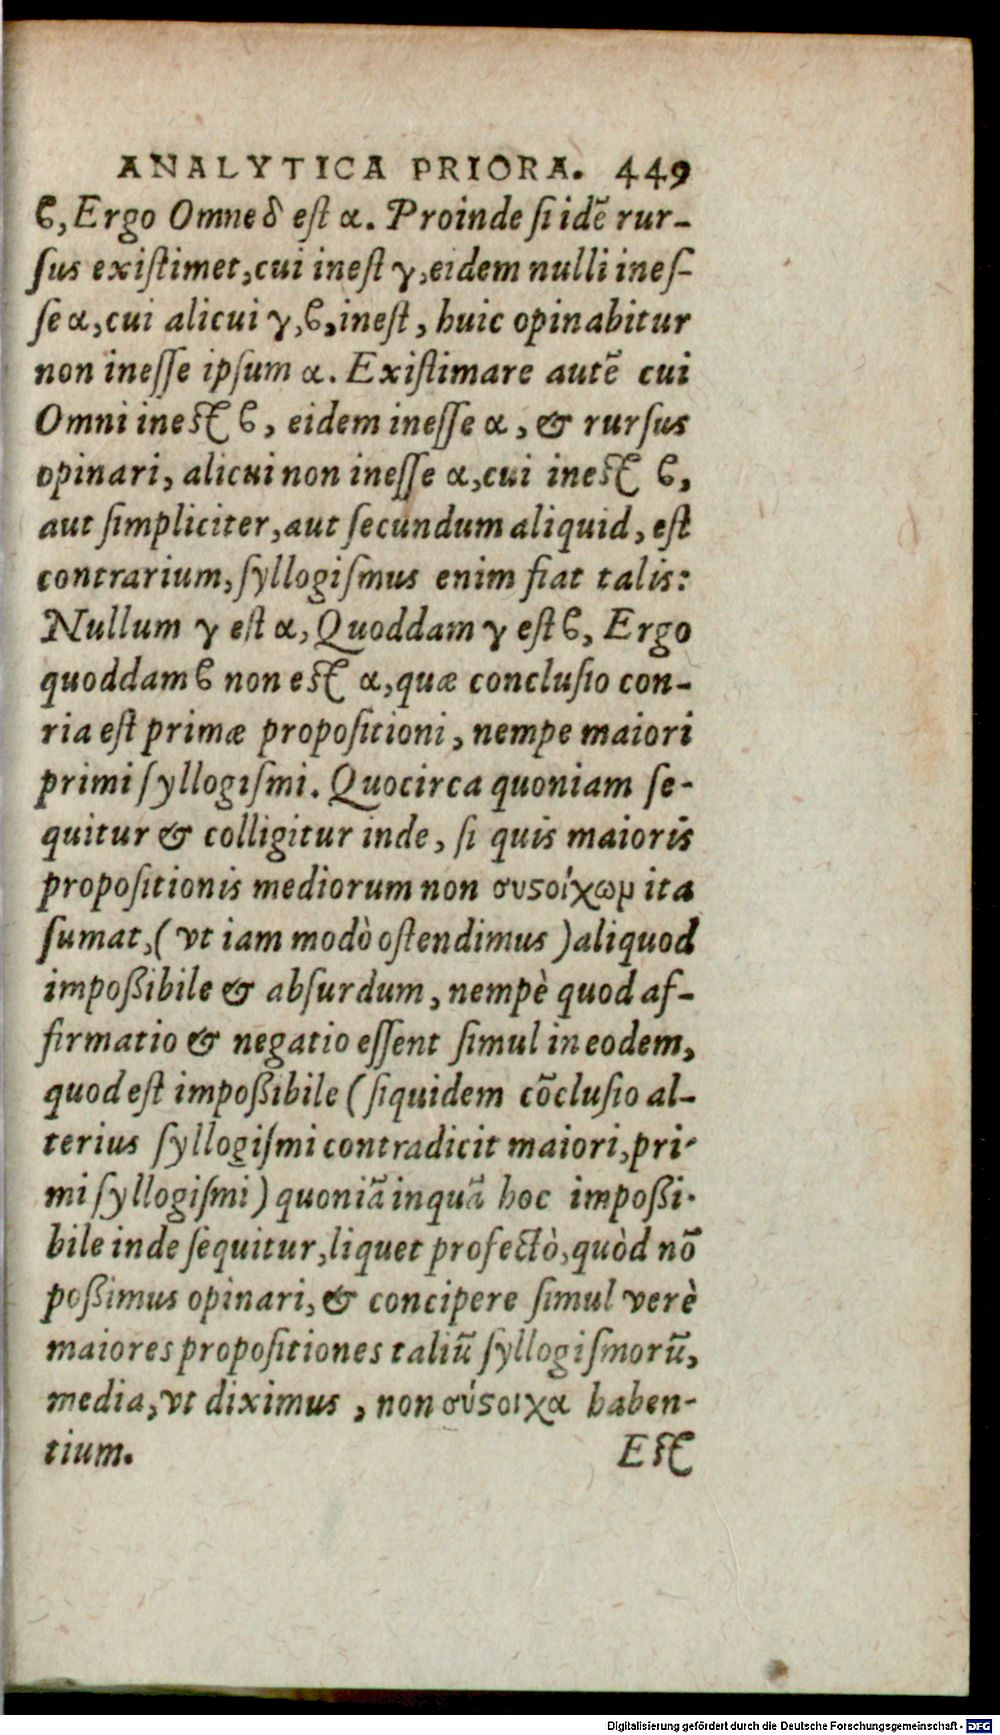 ANALYTICA PRIORA. 449
ϐ, Ergo Omne δ est α. Proinde si idẽ rur-
sus existimet, cui inest γ, eidem nulli ines-
se α, cui alicui γ, ϐ, inest, huic opinabitur
non inesse ipsum α. Existimare autẽ cui
Omni inest ϐ, eidem inesse α, & rursus
opinari, alicui non inesse α, cui inest ϐ,
aut simpliciter, aut secundum aliquid, est
contrarium, syllogismus enim fiat talis:
Nullum γ est α, Quoddam γ est ϐ, Ergo
quoddam ϐ non est α, quæ conclusio con-
ria est primæ propositioni, nempe maiori
primi syllogismi. Quocirca quoniam se-
quitur & colligitur inde, si quis maioris
propositionis mediorum non συϛοίχωμ ita
sumat, (vt iam modò ostendimus) aliquod
impoßibile & absurdum, nempè quod af-
firmatio & negatio essent simul in eodem,
quod est impoßibile (siquidem cõclusio al-
terius syllogismi contradicit maiori, pri-
mi syllogismi) quoniã inquã hoc impoßi-
bile inde sequitur, liquet profectò, quòd nõ
poßimus opinari, & concipere simul verè
maiores propositiones taliũ syllogismorũ,
media, vt diximus, non σύϛοιχα haben-
tium. Est
Digitalisierung gefördert durch die Deutsche Forschungsgemeinschaft - DFG